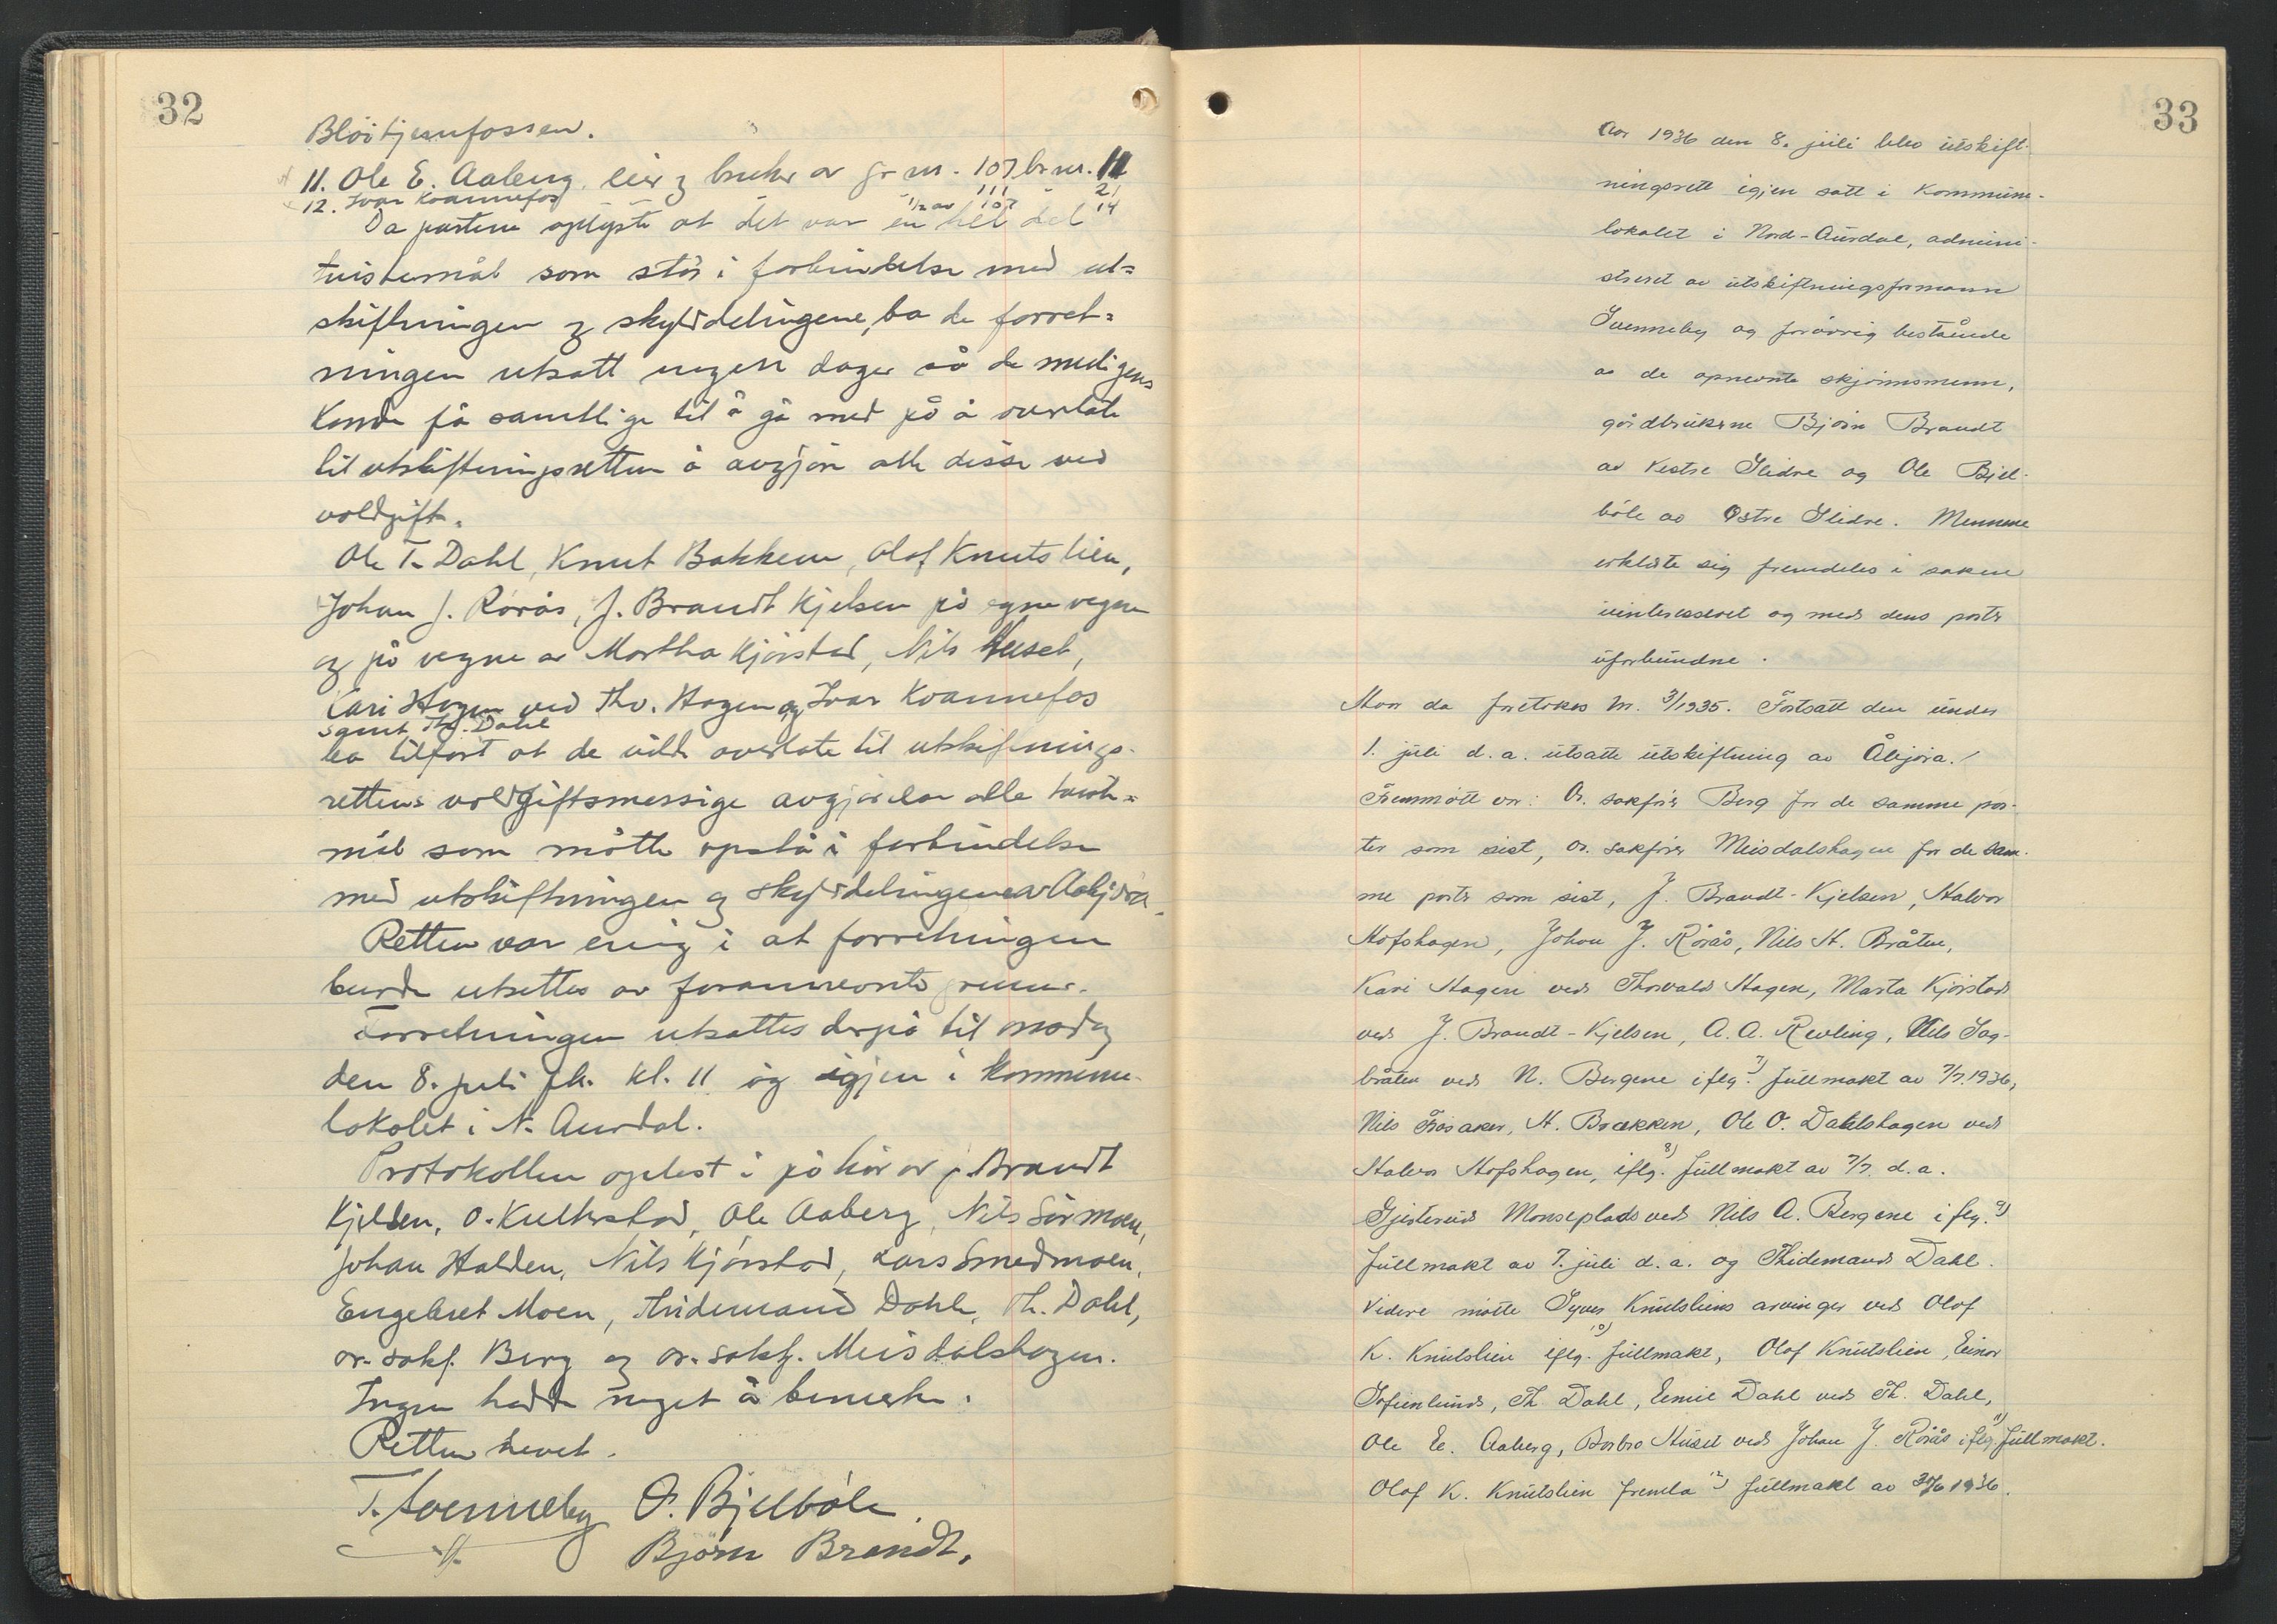 32
Blöitjernfossen.
11. Ole E. Aaberg, eier og bruker av gr nr. 107 br nr. 11
111 21
12. Ivar Kvannefos 1/2 av 107 14
Da partene oplyste at det var en hel del
tvistemål som står i forbindelse med ut=
skiftningen og skylddelingene, ba de forret=
ningen utsatt nogen dager så de muligens
kunde få samtlige til å gå med på å overlate
til utskiftningsretten å avgjöre alle disse ved
voldgift.
Ole T. Dahl, Knut Bakken, Olaf Knutslien,
Johan J. Rörås, J. Brandt Kjelsen på egne vegne
og på vegne av Martha Kjörstad, Nils Huset,
Kari Hagen ved Thv. Hagen og Ivar Kvannefos
samt Th. Dahl
ba tilfört at de vilde overlate til utskiftnings-
rettens voldgiftsmessige avgjörelse alle tviste=
mål som måtte opstå i forbindelse
med utskiftningen og skylddelingene av Aabjöra.
Retten var enig i at forretningen
burde utsettes av forannevnte grunner.
Forretningen utsattes derpå til onsdag
den 8. juli fk. kl. 11 og igjen i kommune-
lokalet i N. Aurdal.
Protokollen oplest i påhör av J. Brandt
Kjelsen, O. Kulterstad, Ole Aaberg, Nils Sörmoen,
Johan Halden, Nils Kjörstad, Lars Smedmoen,
Engebret Moen, Thidemand Dahl, Th. Dahl,
or. sakf. Berg og or. sakf. Meisdalshagen.
Ingen hadde noget å bemerke.
Retten hevet.
T. Svenneby O. Bjelböle.
Björn Brandt.
33
Aar 1936 den 8. juli blev utskift-
ningsrett igjen satt i Kommune-
lokalet i Nord-Aurdal, admini-
streret av utskiftningsformann
Svenneby og forövrig bestående
av de opnevnte skjönnsmenn,
gårdbrukerne Björn Brandt
av Vestre Slidre og Ole Bjel-
böle av Östre Slidre. Mennene
erklærte sig fremdeles i saken
uinteresseret og med dens parter
uforbundne.
Man da foretokes Nr. 3/1935. Fortsatt den under
1. juli d.a. utsatte utskiftning av Åbjöra.
Fremmött var: Or. sakförer Berg for de samme par-
ter som sist, or. sakförer Meisdalshagen for de sam-
me parter som sist, J. Brandt-Kjelsen, Halvor
Hofshagen, Johan J. Rörås, Nils H. Bråten,
Kari Hagen ved Thorvald Hagen, Marta Kjörstad
ved J. Brandt-Kjelsen, A. A. Revling, Nils Sag-
bråten ved N. Bergene iflg. 7) fullmakt av 7/7.1936,
Nils Frösaker, H. Brækken, Ole O. Dahlshagen ved
Halvor Hofshagen, iflg. 8) fullmakt av 7/7. d.a.
Gjisterud Monseplads ved Nils A. Bergene iflg. 9)
fullmakt av 7. juli d.a. og Thidemand Dahl.
Videre mötte Syver Knutsliens arvinger ved Olaf
K. Knutslien iflg. 10) fullmakt, Olaf Knutslien, Einar
Sofienlund, Th. Dahl, Emil Dahl ved Th. Dahl,
Ole E. Aaberg, Barbro Huset ved Johan J. Rörås iflg. 11) fullmakt.
Olaf K. Knutslien fremla 12) fullmakt av 30/6 1936.